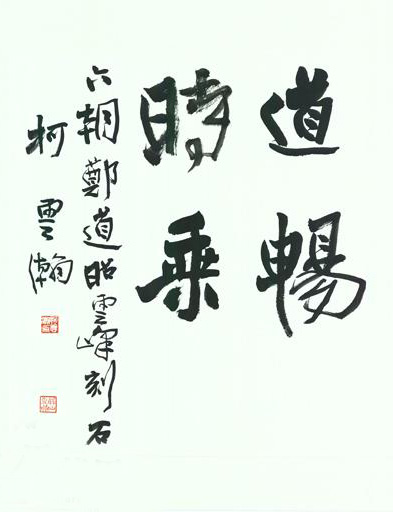 道暢
時乗
六朝鄭道昭雲峰刻石
柯雲瀚